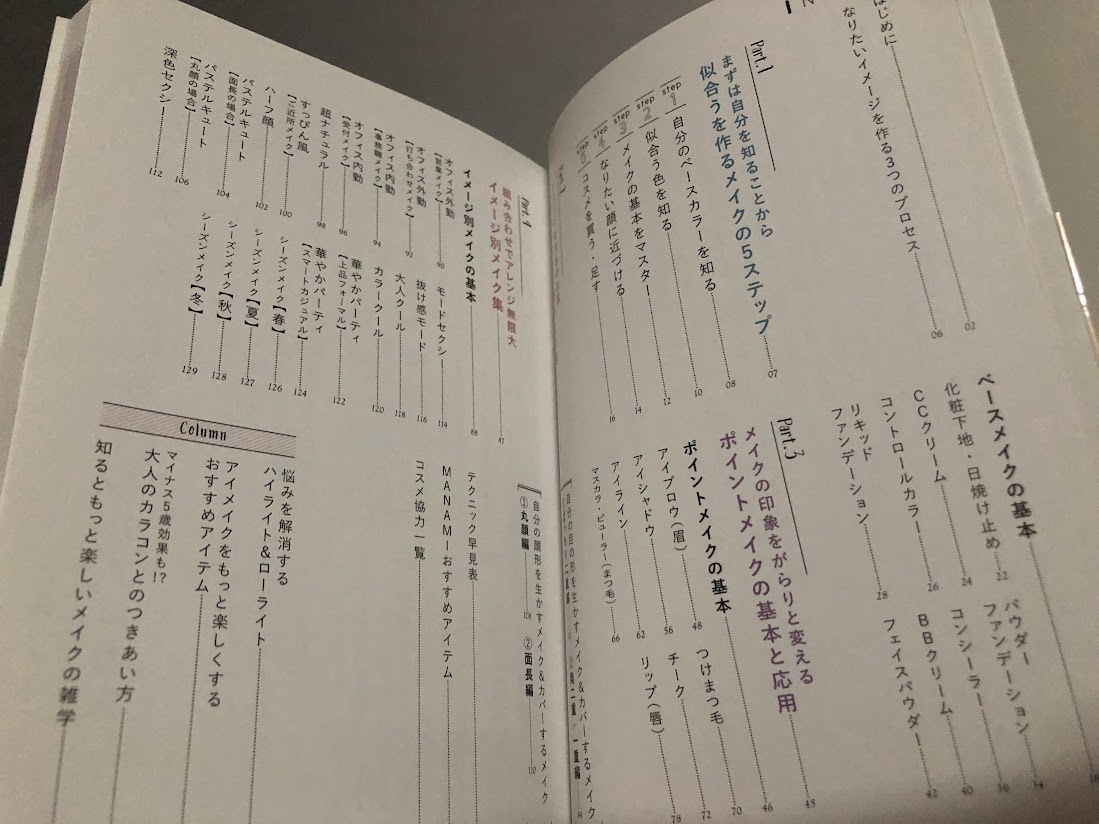 はじめに 02
なりたいイメージを作る3つのプロセス 06
Part.1
まずは自分を知ることから
似合うを作るメイクの5ステップ 07
step 1 自分のベースカラーを知る 08
step 2 似合う色を知る 10
step 3 メイクの基本をマスター 12
step 4 なりたい顔に近づける 14
step 5 コスメを買う・足す 16
ベースメイクの基本
化粧下地・日焼け止め 22
CCクリーム 24
コントロールカラー 26
リキッド
ファンデーション 28
パウダー
ファンデーション 34
コンシーラー 36
BBクリーム 40
フェイスパウダー 42
Part.3
メイクの印象をがらりと変える
ポイントメイクの基本と応用 45
ポイントメイクの基本 46
アイブロウ(眉) 48
アイシャドウ 56
アイライン 62
マスカラ・ビューラー(まつ毛) 66
つけまつ毛 70
チーク 72
リップ(唇) 78
自分の目の形を生かすメイク&カバーするメイク
②奥二重・一重編 84
Part.4
組み合わせでアレンジ無限大
イメージ別メイク集 87
イメージ別メイクの基本 88
オフィス外勤
【営業メイク】 90
オフィス外勤
【打ち合わせメイク】 92
オフィス内勤
【事務職メイク】 94
オフィス内勤
【受付メイク】 96
超ナチュラル 98
すっぴん風
【ご近所メイク】 100
ハーフ顔 102
パステルキュート
【面長の場合】 104
パステルキュート
【丸顔の場合】 106
深色セクシー 112
モードセクシー 114
抜け感モード 116
大人クール 118
カラークール 120
華やかパーティ
【上品フォーマル】 122
華やかパーティ
【スマートカジュアル】 124
シーズンメイク【春】 126
シーズンメイク【夏】 127
シーズンメイク【秋】 128
シーズンメイク【冬】 129
自分の顔形を生かすメイク&カバーするメイク
①丸顔編 108
②面長編 110
テクニック早見表
MANAMIおすすめアイテム
コスメ協力一覧
Column
悩みを解消する
ハイライト&ローライト
アイメイクをもっと楽しくする
おすすめアイテム
マイナス5歳効果も!?
大人のカラコンとのつきあい方
知るともっと楽しいメイクの雑学